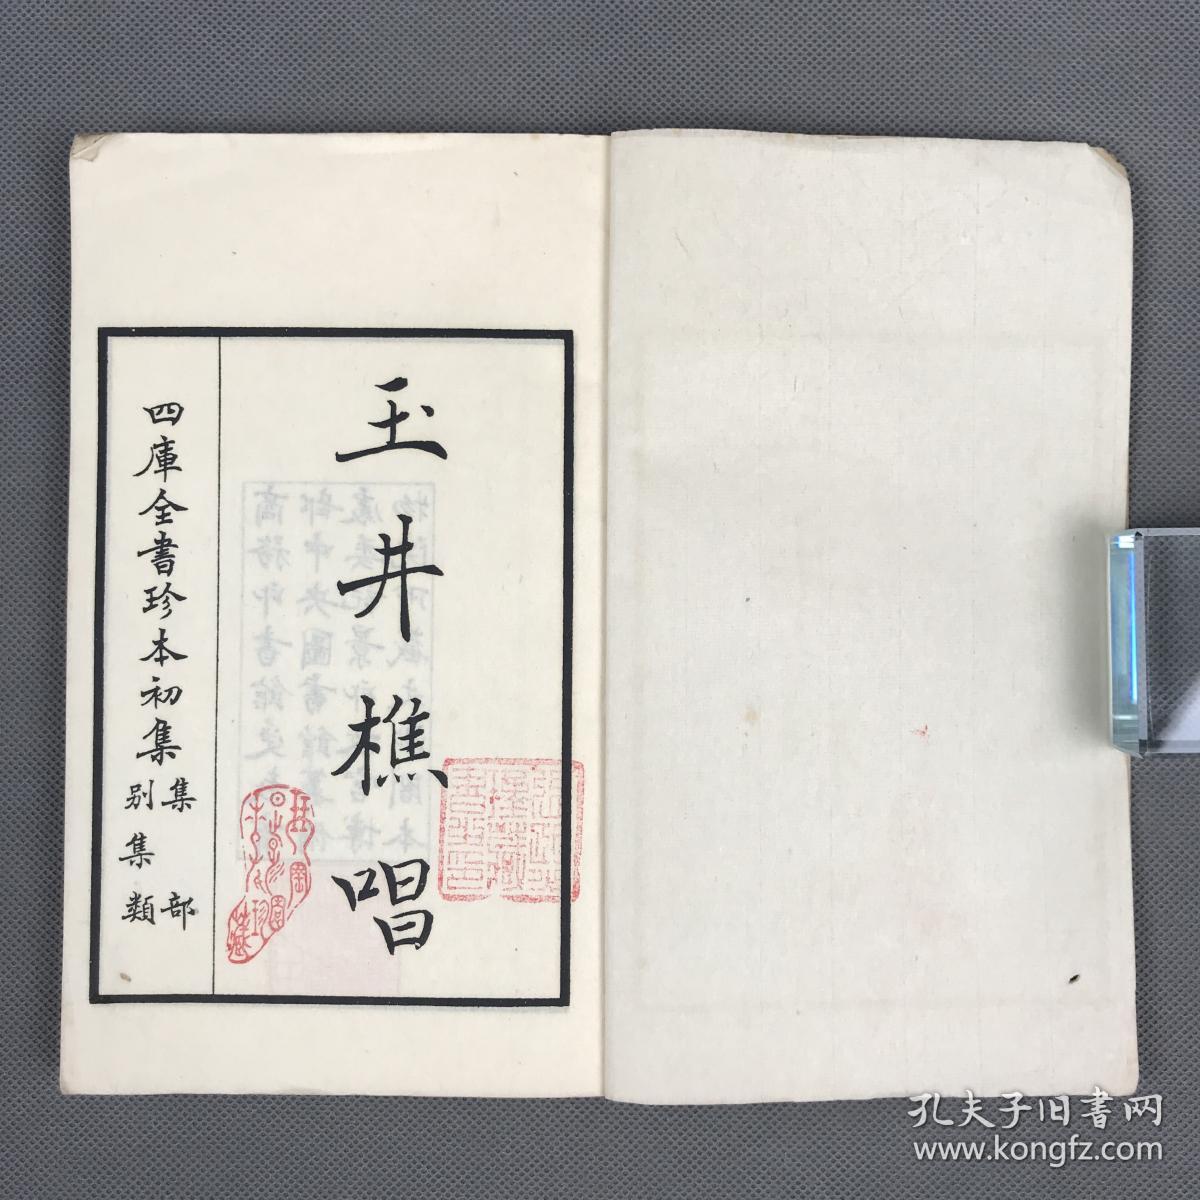 玉井樵唱
四庫全書珍本初集
集部
別集類
孔夫子旧书网
www.kongfz.com